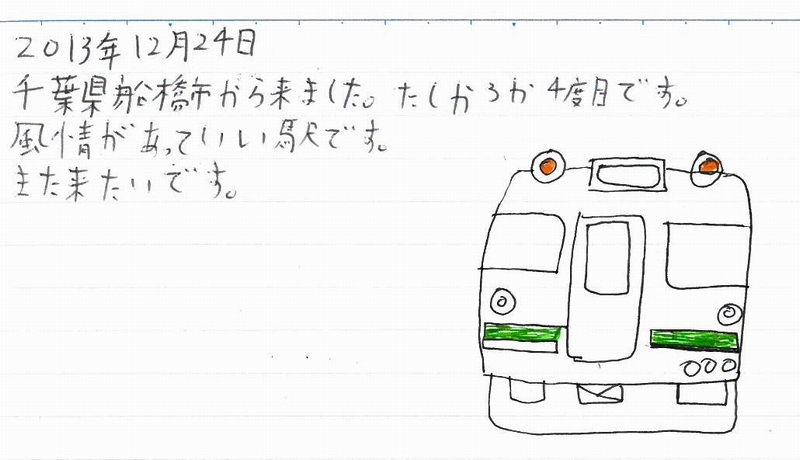 2013年12月24日
千葉県船橋市から来ました。たしか3か4度目です。
風情があっていい駅です。
また来たいです。